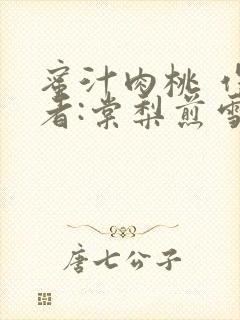 蜜汁肉桃 作
者:棠梨煎雪
唐七公子